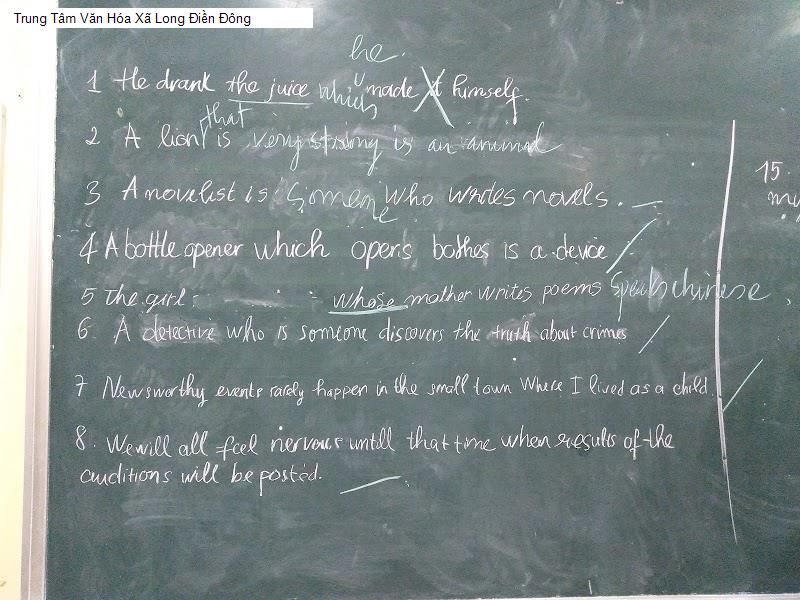 Trung Tâm Văn Hóa Xã Long Điền Đông
he.
1 He drank the juice which made it himself.
that
2 A lion is very strong is an animal
3 A novelist is someone who writes novels.
4 A bottle opener which opens bottles is a device
5 The girl whose mother writes poems speaks chinese,
6 A detective who is someone discovers the truth about crimes
7 Newsworthy events rarely happen in the small town where I lived as a child.
8. We will all feel nervous untill that time when results of the
auditions will be posted.
15.
my